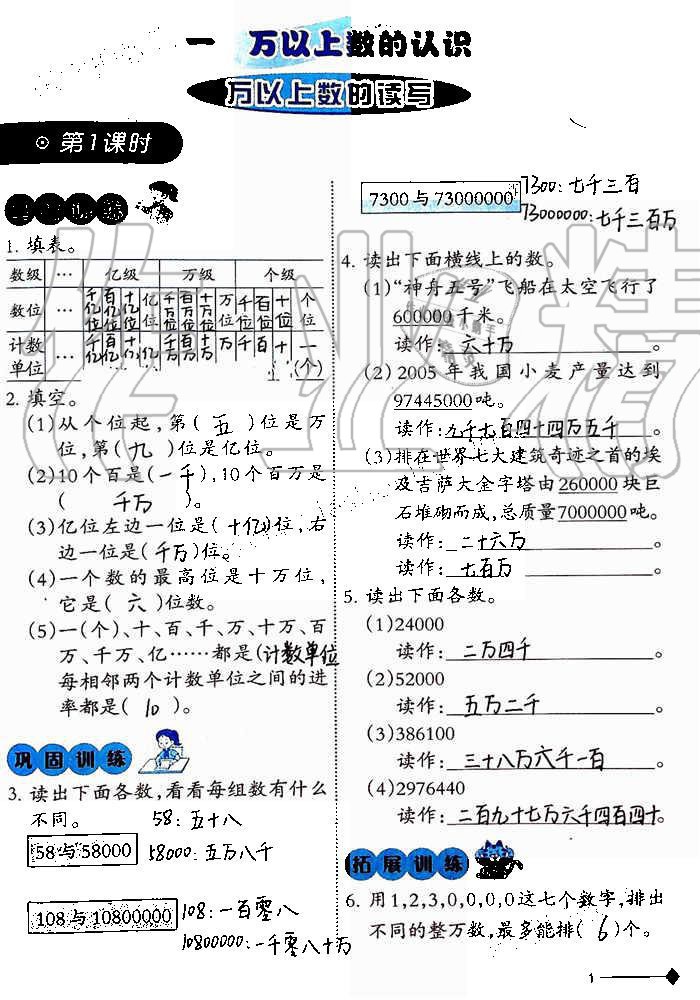 一 万以上数的认识
万以上数的读写
第1课时
1. 填表。
数级 … 亿级 万级 个级
数位 … 千亿位 百亿位 十亿位 亿位 千万位 百万位 十万位 万位 千位 百位 十位 个位
计数单位 … 千亿 百亿 十亿 亿 千万 百万 十万 万 千 百 十 一(个)
2. 填空。
(1)从个位起,第( 五 )位是万
位,第( 九 )位是亿位。
(2)10个百是(一千),10个百万是
( 千万 )。
(3)亿位左边一位是(十亿)位,右
边一位是(千万)位。
(4)一个数的最高位是十万位,
它是( 六 )位数。
(5)一(个)、十、百、千、万、十万、百
万、千万、亿……都是(计数单位
每相邻两个计数单位之间的进
率都是( 10 )。
巩固训练
3. 读出下面各数,看看每组数有什么
不同。 58: 五十八
58与58000 58000: 五万八千
108与10800000 108: 一百零八
10800000: 一千零八十万
7300与73000000 7300: 七千三百
73000000: 七千三百万
4. 读出下面横线上的数。
(1)“神舟五号”飞船在太空飞行了
600000千米。
读作: 六十万 。
(2)2005年我国小麦产量达到
97445000吨。
读作: 九千七百四十四万五千 。
(3)排在世界七大建筑奇迹之首的埃
及吉萨大金字塔由260000块巨
石堆砌而成,总质量7000000吨。
读作: 二十六万 。
读作: 七百万 。
5. 读出下面各数。
(1)24000
读作: 二万四千 。
(2)52000
读作: 五万二千 。
(3)386100
读作: 三十八万六千一百 。
(4)2976440
读作: 二百九十七万六千四百四十。
拓展训练
6. 用1,2,3,0,0,0,0这七个数字,排出
不同的整万数,最多能排( 6 )个。
1